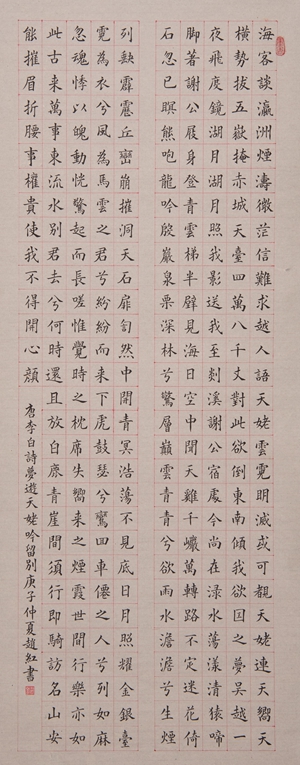 海客談瀛洲煙濤微茫信難求越人語天姥雲霓明滅或可覩天姥連天嚮天
橫勢拔五嶽掩赤城天臺四萬八千丈對此欲倒東南傾我欲因之夢吳越一
夜飛度鏡湖月湖月照我影送我至剡溪謝公宿處今尚在淥水蕩漾清猿啼
脚著謝公屐身登青雲梯半壁見海日空中聞天雞千巖萬轉路不定迷花倚
石忽已暝熊咆龍吟殷巖泉栗深林兮驚層巔雲青青兮欲雨水澹澹兮生煙
列缺霹靂丘巒崩摧洞天石扉訇然中開青冥浩蕩不見底日月照耀金銀臺
霓為衣兮風為馬雲之君兮紛紛而来下虎鼓瑟兮鸞回車僊之人兮列如麻
忽魂悸以魄動怳驚起而長嗟惟覺時之枕席失嚮来之煙霞世間行樂亦如
此古来萬事東流水別君去兮何時還且放白鹿青崖間須行即騎訪名山安
能摧眉折腰事權貴使我不得開心顏
唐李白詩夢遊天姥吟留別庚子仲夏趙紅書